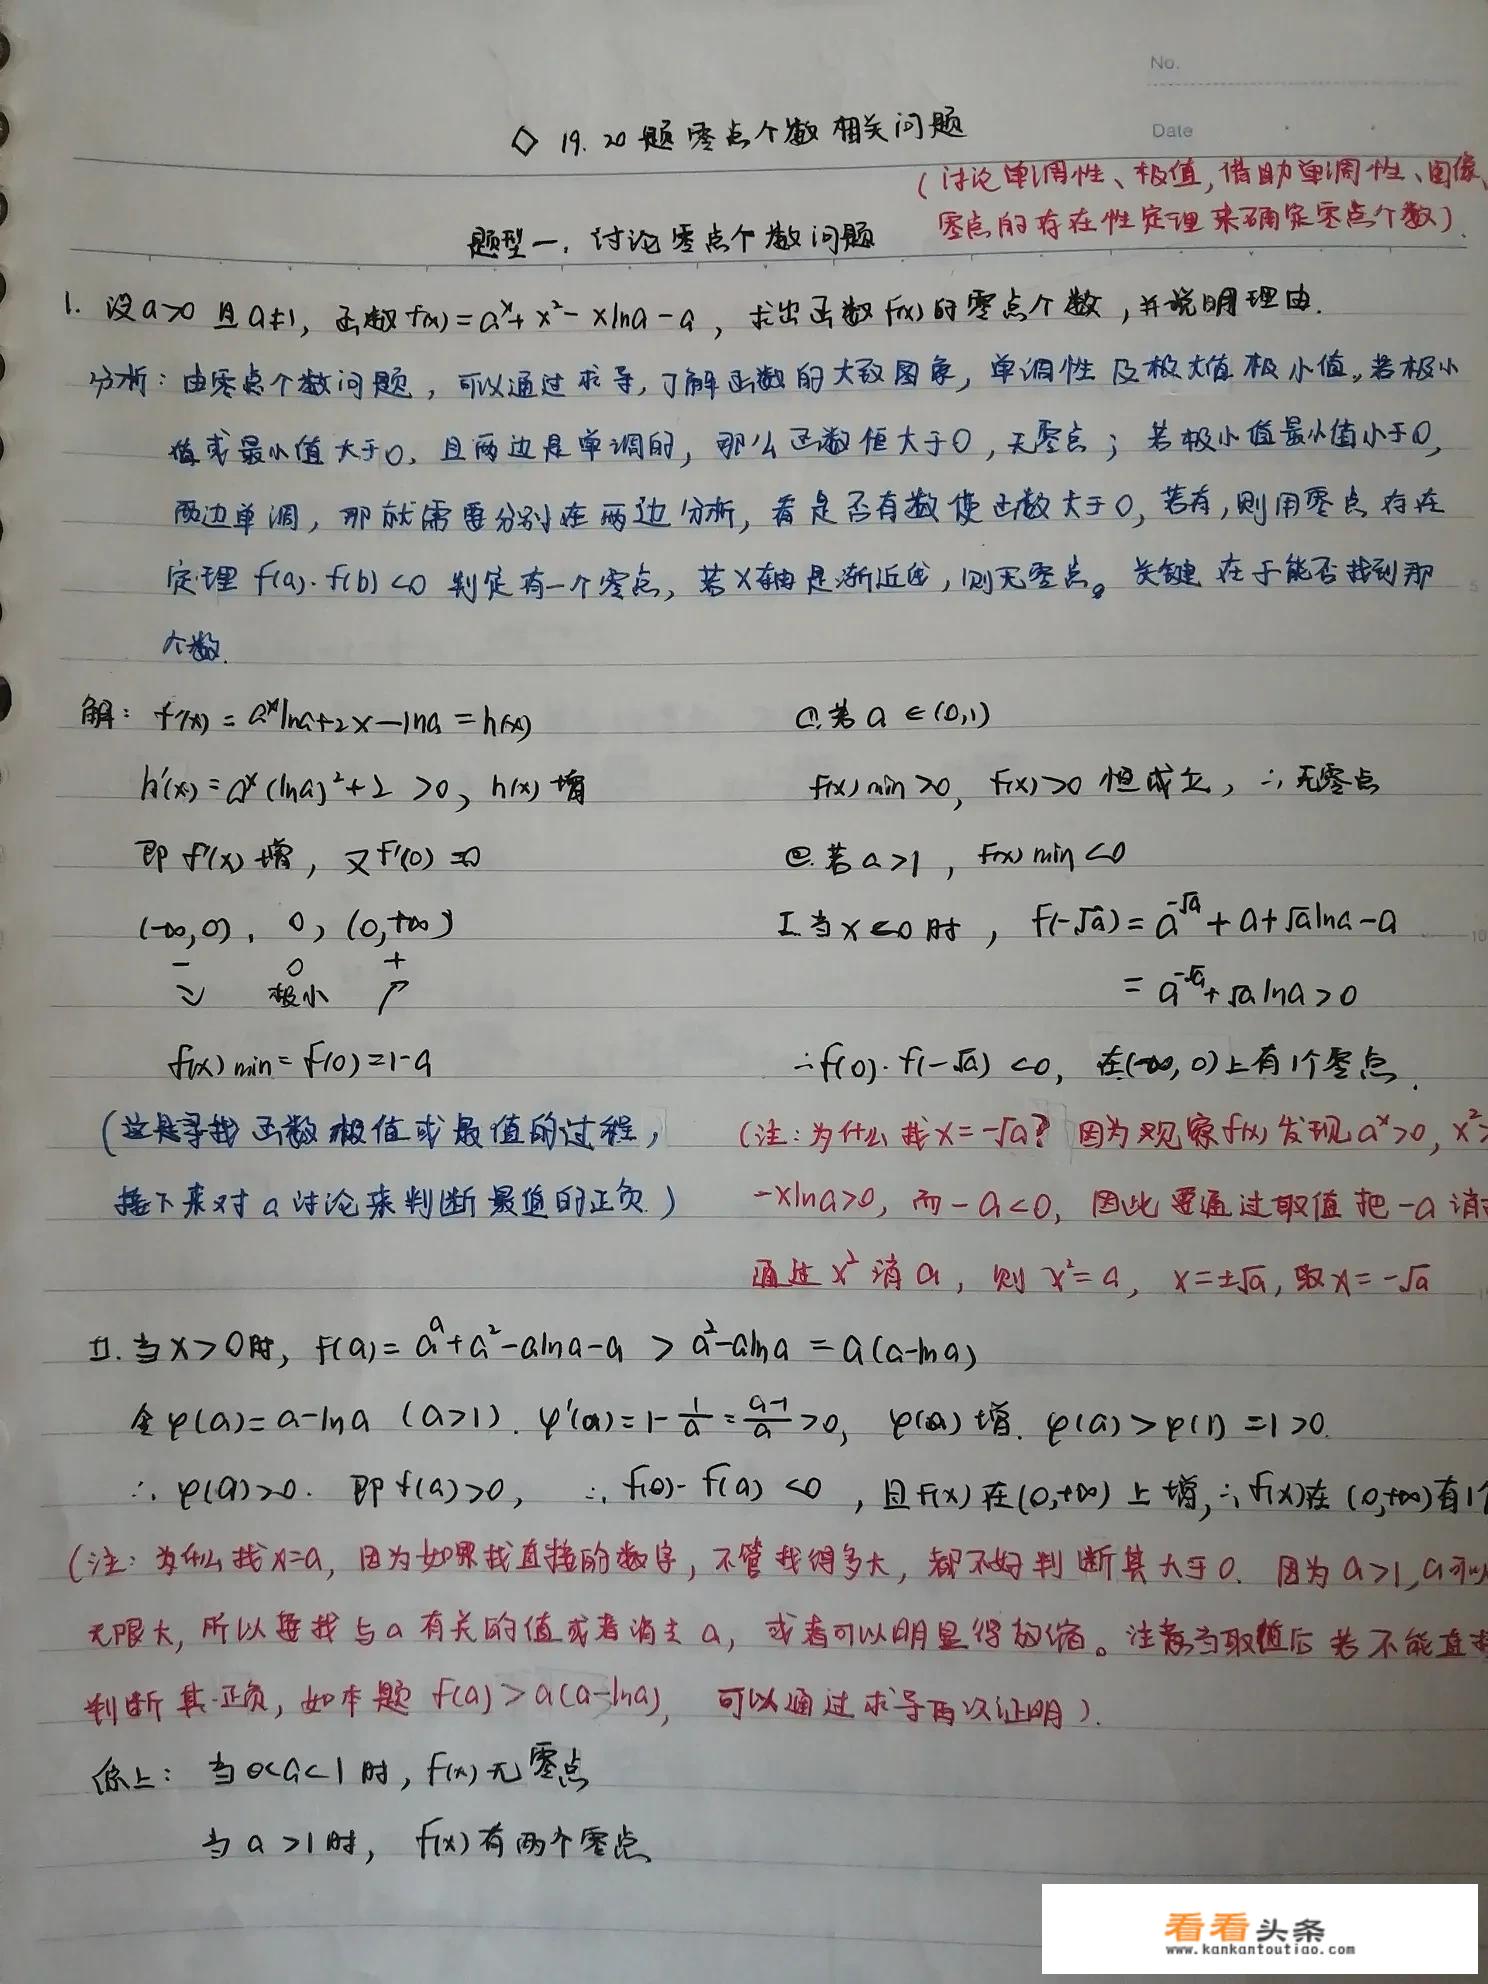 No.
Date
◇ 19. 20题零点个数相关问题
(讨论单调性、极值,借助单调性、图像、
零点的存在性定理来确定零点个数).
题型一. 讨论零点个数问题
1. 设a>0 且a≠1, 函数f(x)=aˣ+x²-xlna-a, 求出函数f(x)的零点个数,并说明理由.
分析: 由零点个数问题, 可以通过求导,了解函数的大致图象, 单调性及极大值极小值。若极小
值或最小值大于0, 且两边是单调的, 那么函数恒大于0, 无零点; 若极小值最小值小于0,
两边单调, 那就需要分别在两边分析, 看是否有数使函数大于0, 若有, 则用零点存在
定理 f(a)·f(b)<0 判定有一个零点, 若X轴是渐近线, 则无零点。关键在于能否找到那
个数.
解: f'(x)=aˣlna+2x-lna=h(x)
h'(x)=aˣ(lna)²+2>0, h(x)增
即f'(x)增, 又f'(0)=0
(-∞,0), 0, (0,+∞)
- 0 +
↘ 极小 ↗
f(x)min=f(0)=1-a
(这是寻找函数极值或最值的过程,
接下来对a讨论来判断最值的正负.)
①.若a∈(0,1)
f(x)min>0, f(x)>0恒成立, ∴无零点
②.若a>1, f(x)min<0
I.当x≤0时, f(-√a)=a^(-√a)+a+√alna-a
=a^(-√a)+√alna>0
∴f(0)·f(-√a)<0, 在(-∞,0)上有1个零点.
(注:为什么找x=-√a? 因为观察f(x)发现aˣ>0, x²>
-xlna>0, 而-a<0, 因此要通过取值把-a消
通过x²消a, 则x²=a, x=±√a, 取x=-√a
II.当x>0时, f(a)=aᵃ+a²-alna-a > a²-alna=a(a-lna)
令φ(a)=a-lna (a>1). φ'(a)=1-1/a=(a-1)/a>0, φ(a)增. φ(a)>φ(1)=1>0.
∴φ(a)>0. 即f(a)>0, ∴f(0)·f(a)<0, 且f(x)在(0,+∞)上增,∴f(x)在(0,+∞)有1个
(注: 为什么找x=a, 因为如果找直接的数字, 不管找得多大, 都不好判断其大于0. 因为a>1, a可以
无限大, 所以要找与a有关的值或者消去a, 或者可以明显得放缩。注意当取值后若不能直接
判断其正负, 如本题f(a)>a(a-lna), 可以通过求导再次证明).
综上: 当0<a<1时, f(x)无零点
当a>1时, f(x)有两个零点.
看看头条
www.kankantoutiao.com